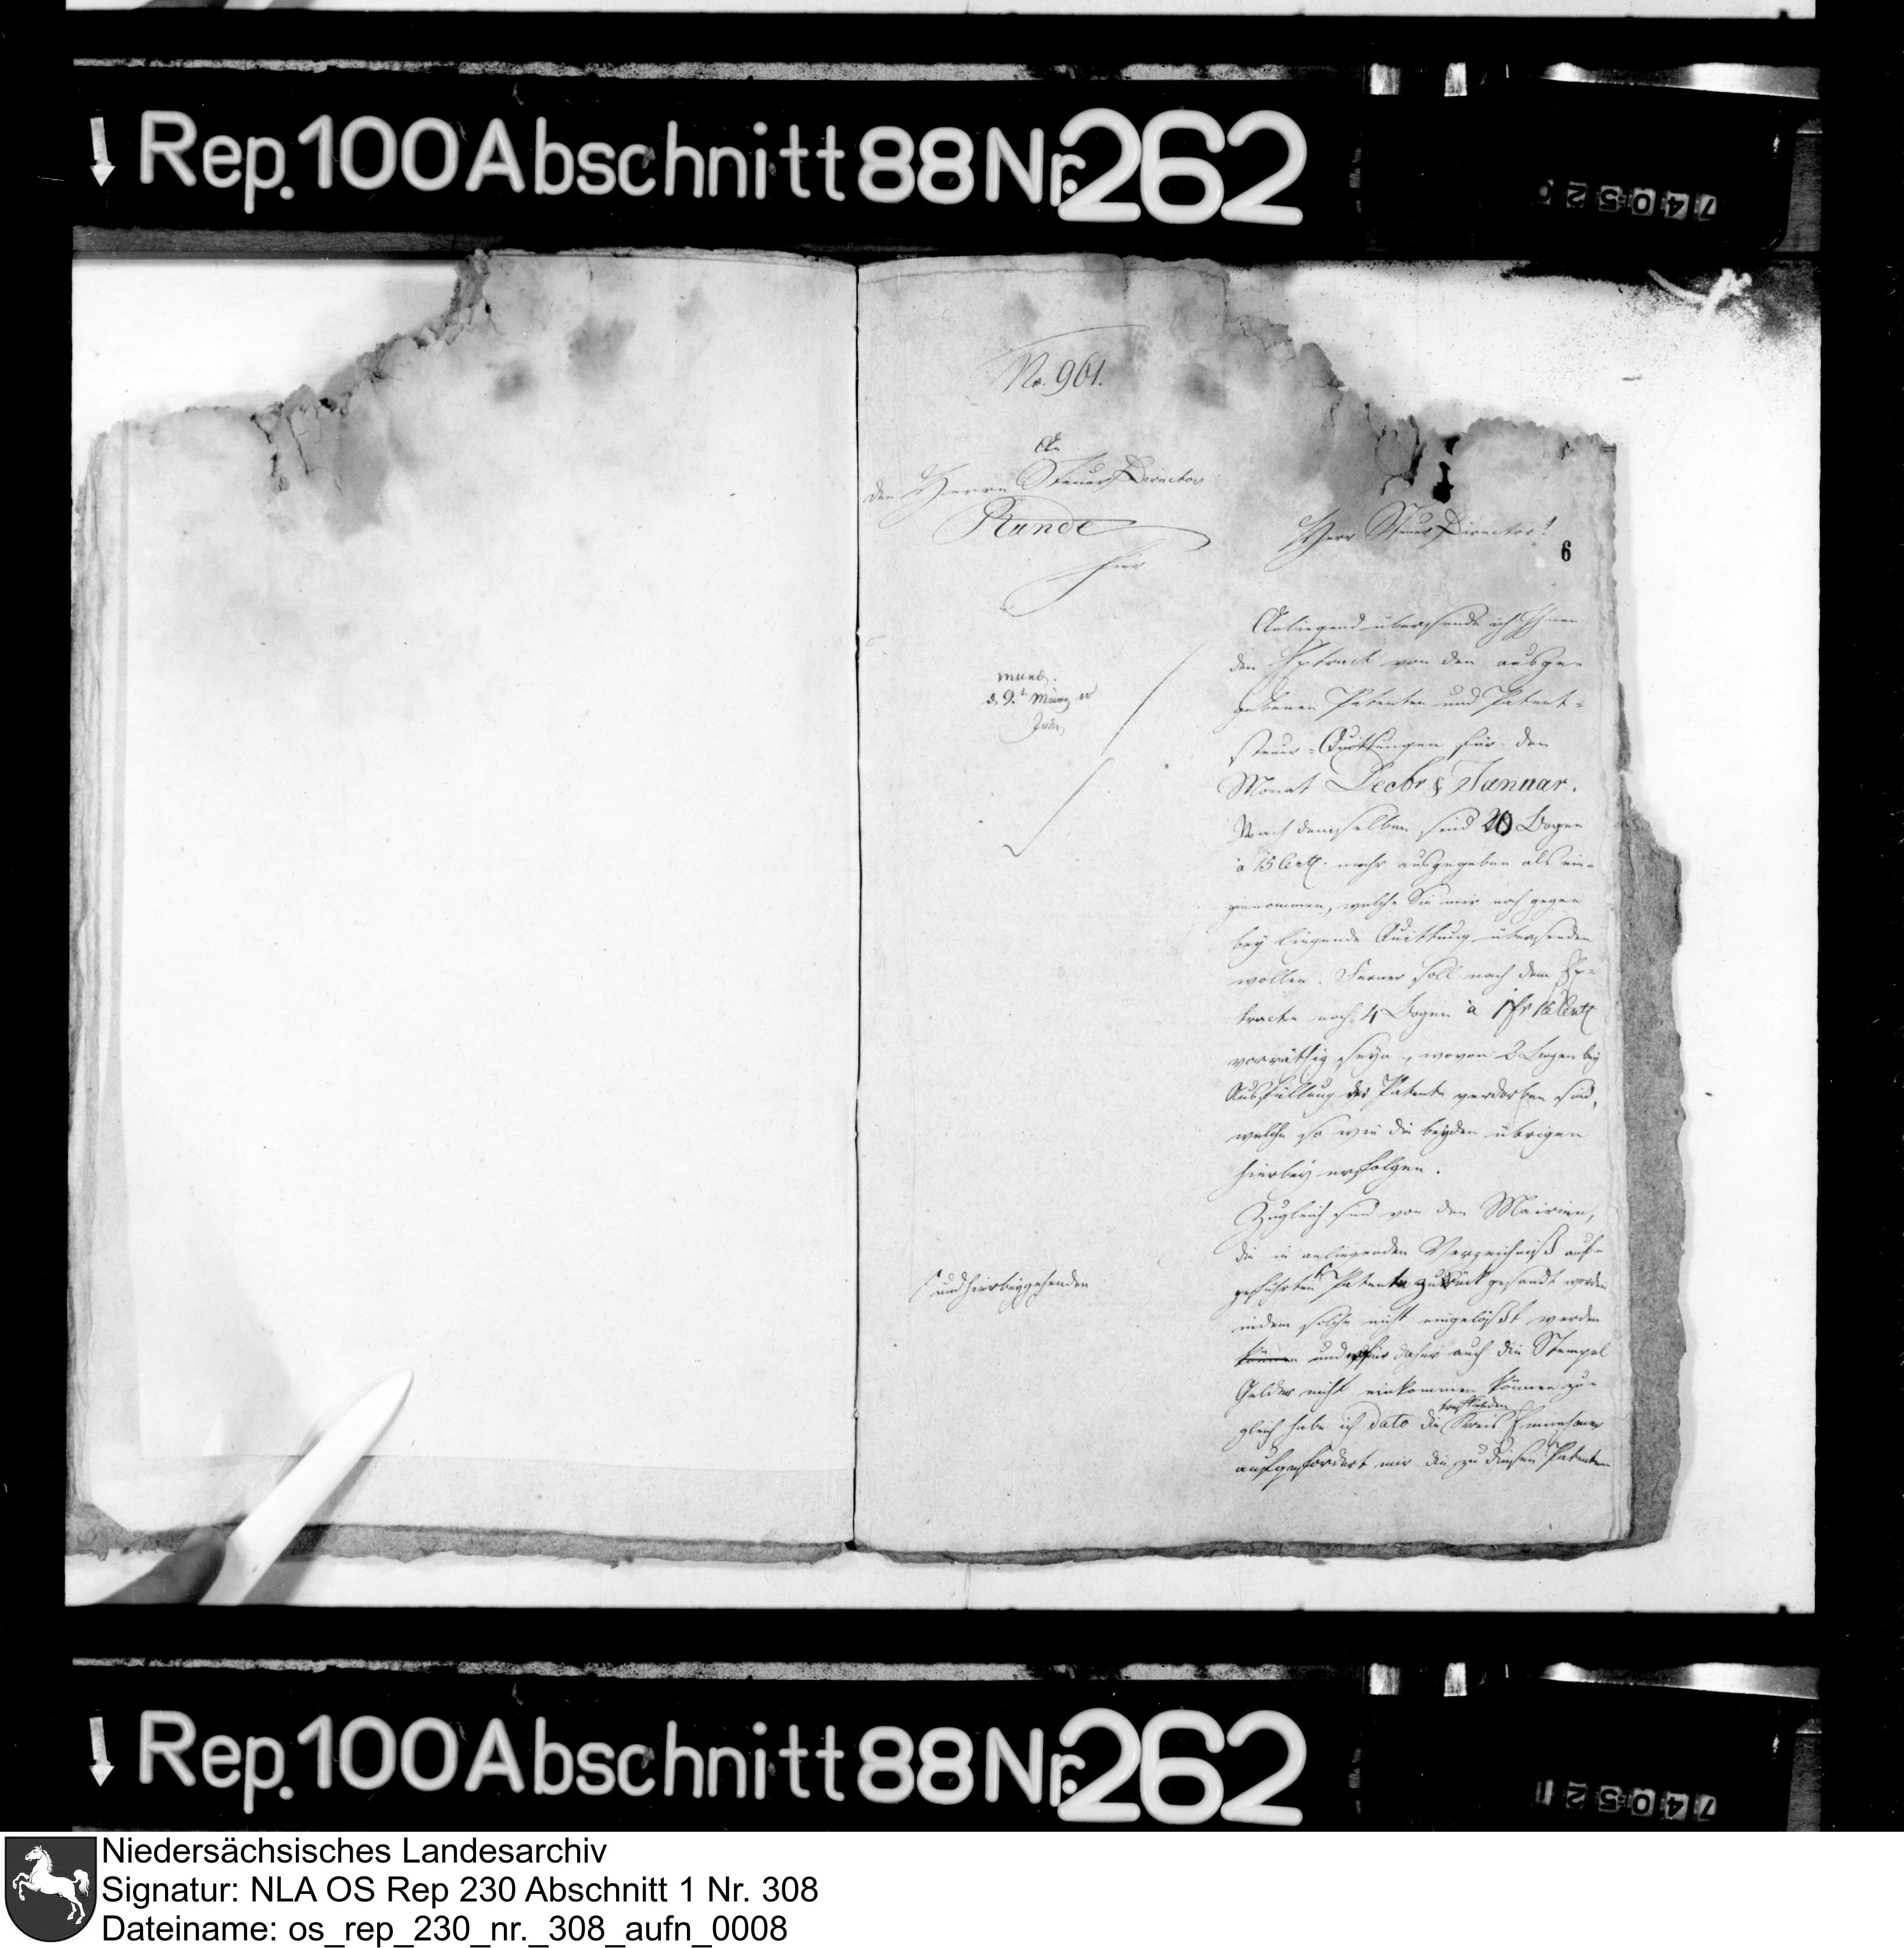 Rep. 100 Abschnitt 88 Nr. 262
74052
No. 961.
An
den Herrn Steuer Director
Runde
hier
mund.
d. 9. t. März
6
Herr Steuer Director!
Anliegend übersende ich Ihnen
den Extract von den ausge-
gebenen Patenten und Patent-
steuer-Quittungen für den
Monat Decbr & Januar.
Nach demselben sind 20 Bogen
à 15 Cent. mehr ausgegeben als ein-
genommen, welche Sie mir noch gegen
bey liegende Quittung übersenden
wollen. Ferner soll nach dem Ex-
tracte noch 4 Bogen à 1 fr 15 Cent
vorräthig seyn, wovon 2 Bogen bey
Ausfüllung der Patente verdorben sind,
welche so wie die beyden übrigen
hierbey erfolgen.
Zugleich sind von den Mairien,
die in anliegenden Verzeichniß auf-
geführten Patente zurück gesandt worden
und hierbeygehenden
indem solche nicht eingelößt werden
können und dafür daher auch die Stempel
Gelder nicht einkommen können zu-
gleich habe ich dato die betreffenden Kreis Einnehmer
aufgefordert mir die zu diesen Patenten
Rep. 100 Abschnitt 88 Nr. 262
740521
Niedersächsisches Landesarchiv
Signatur: NLA OS Rep 230 Abschnitt 1 Nr. 308
Dateiname: os_rep_230_nr._308_aufn_0008